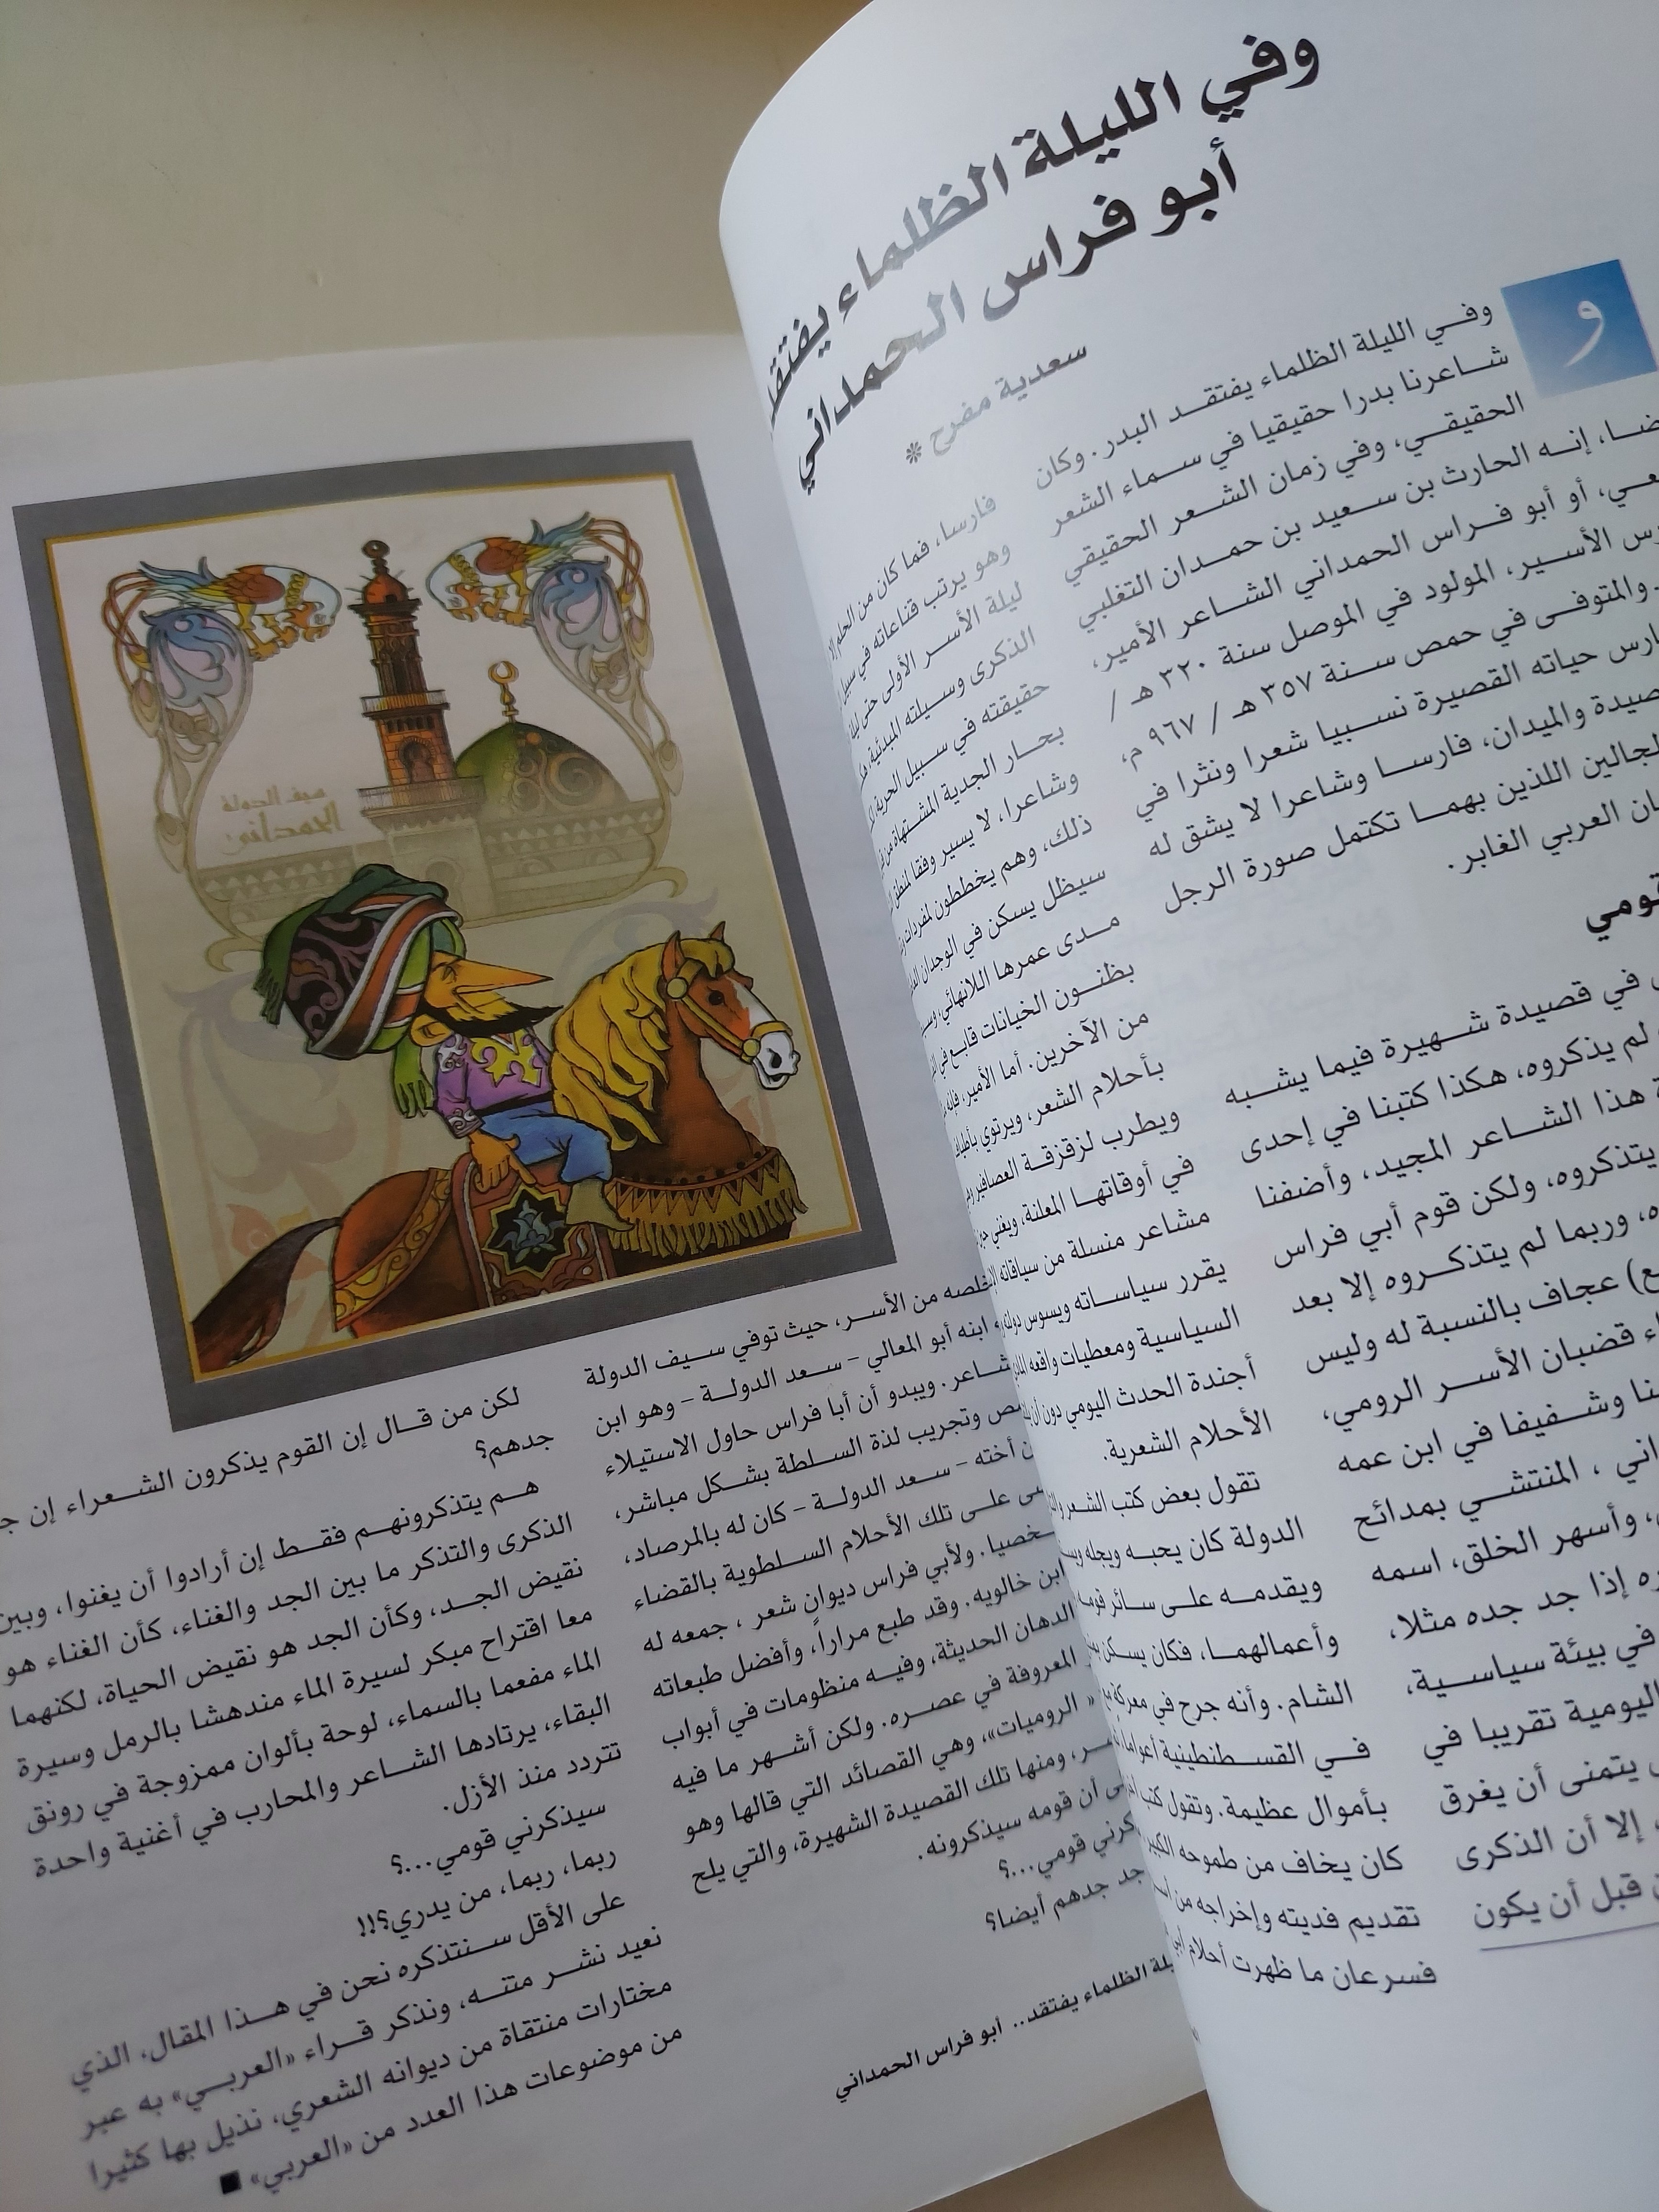 وفي الليلة الظلماء يفتقد
أبو فراس الحمداني
سعدية مفرح *
و
وفي الليلة الظلماء يفتقد البدر. وكان
شاعرنا بدرا حقيقيا في سماء الشعر
الحقيقي، وفي زمان الشعر الحقيقي
إنه الحارث بن سعيد بن حمدان التغلبي
أو أبو فراس الحمداني الشاعر الأمير،
الأسير، المولود في الموصل سنة ٣٢٠ هـ /
والمتوفى في حمص سنة ٣٥٧ هـ / ٩٦٧ م،
حياته القصيرة نسبيا شعرا ونثرا في
والميدان، فارسا وشاعرا لا يشق له
اللذين بهما تكتمل صورة الرجل
العربي الغابر.
قومي
في قصيدة شهيرة فيما يشبه
لم يذكروه، هكذا كتبنا في إحدى
هذا الشاعر المجيد، وأضفنا
يتذكروه، ولكن قوم أبي فراس
وربما لم يتذكروه إلا بعد
عجاف بالنسبة له وليس
قضبان الأسر الرومي،
وشفيفا في ابن عمه
المنتشي بمدائح
وأسهر الخلق، اسمه
إذا جد جده مثلا،
في بيئة سياسية،
اليومية تقريبا في
يتمنى أن يغرق
إلا أن الذكرى
قبل أن يكون
فارسا، فما كان من الحلم إلا
وهو يرتب قناعاته في سبيل
ليلة الأسر الأولى حتى ليلة
الذكرى وسيلته المبدئية،
حقيقته في سبيل الحرية،
بحار الجدية المشتهاة من
وشاعرا، لا يسير وفقا لمنطق
ذلك، وهم يخططون لمفردات
سيظل يسكن في الوجدان
مدى عمرها اللانهائي،
بظنون الخيانات قابع في
من الآخرين. أما الأمير، فإنه
بأحلام الشعر، ويرتوي بأطياف
ويطرب لزقزقة العصافير
في أوقاتها المعلنة، ويغني
مشاعر منسلة من سياقاته
يقرر سياساته ويسوس دولته
السياسية ومعطيات واقعه
أجندة الحدث اليومي دون أن
الأحلام الشعرية.
تقول بعض كتب الشعر
الدولة كان يحبه ويجله
ويقدمه على سائر قومه
وأعمالهما، فكان يسكن
الشام. وأنه جرح في معركة
في القسطنطينية أعواما،
بأموال عظيمة. وتقول كتب
كان يخاف من طموحه الكبير
تقديم فديته وإخراجه من
فسرعان ما ظهرت أحلام أبي
سيف الدولة
الحمداني
من الأسر، حيث توفي سيف الدولة
ابنه أبو المعالي - سعد الدولة - وهو ابن
ويبدو أن أبا فراس حاول الاستيلاء
وتجريب لذة السلطة بشكل مباشر،
أخته - سعد الدولة - كان له بالمرصاد،
على تلك الأحلام السلطوية بالقضاء
ولأبي فراس ديوان شعر، جمعه له
ابن خالويه. وقد طبع مراراً، وأفضل طبعاته
الدهان الحديثة، وفيه منظومات في أبواب
المعروفة في عصره. ولكن أشهر ما فيه
«الروميات»، وهي القصائد التي قالها وهو
ومنها تلك القصيدة الشهيرة، والتي يلح
أن قومه سيذكرونه.
قومي...؟
جد جدهم أيضا؟
لكن من قال إن القوم يذكرون الشعراء إن
جدهم؟
هم يتذكرونهم فقط إن أرادوا أن يغنوا، وبين
الذكرى والتذكر ما بين الجد والغناء، كأن الغناء هو
نقيض الجد، وكأن الجد هو نقيض الحياة، لكنهما
معا اقتراح مبكر لسيرة الماء مندهشا بالرمل وسيرة
الماء مفعما بالسماء، لوحة بألوان ممزوجة في رونق
البقاء، يرتادها الشاعر والمحارب في أغنية واحدة
تتردد منذ الأزل.
سيذكرني قومي...؟
ربما، ربما، من يدري؟!!
على الأقل سنتذكره نحن في هذا المقال، الذي
نعيد نشر متنه، ونذكر قراء «العربي» به عبر
مختارات منتقاة من ديوانه الشعري، نذيل بها كثيرا
من موضوعات هذا العدد من «العربي» ■
الظلماء يفتقد.. أبو فراس الحمداني